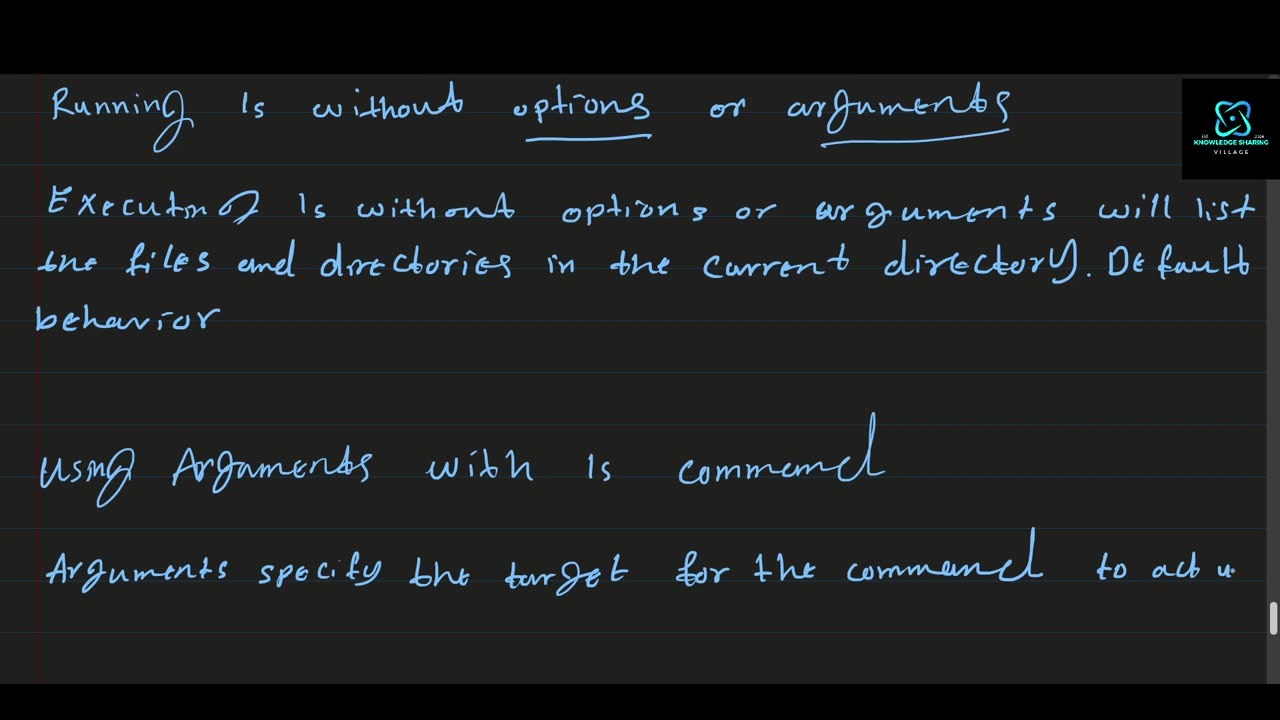 Running ls without options or arguments
Executing ls without options or arguments will list
the files and directories in the current directory. Default
behavior
Using Arguments with ls command
Arguments specify the target for the command to act u
KNOWLEDGE SHARING
VILLAGE